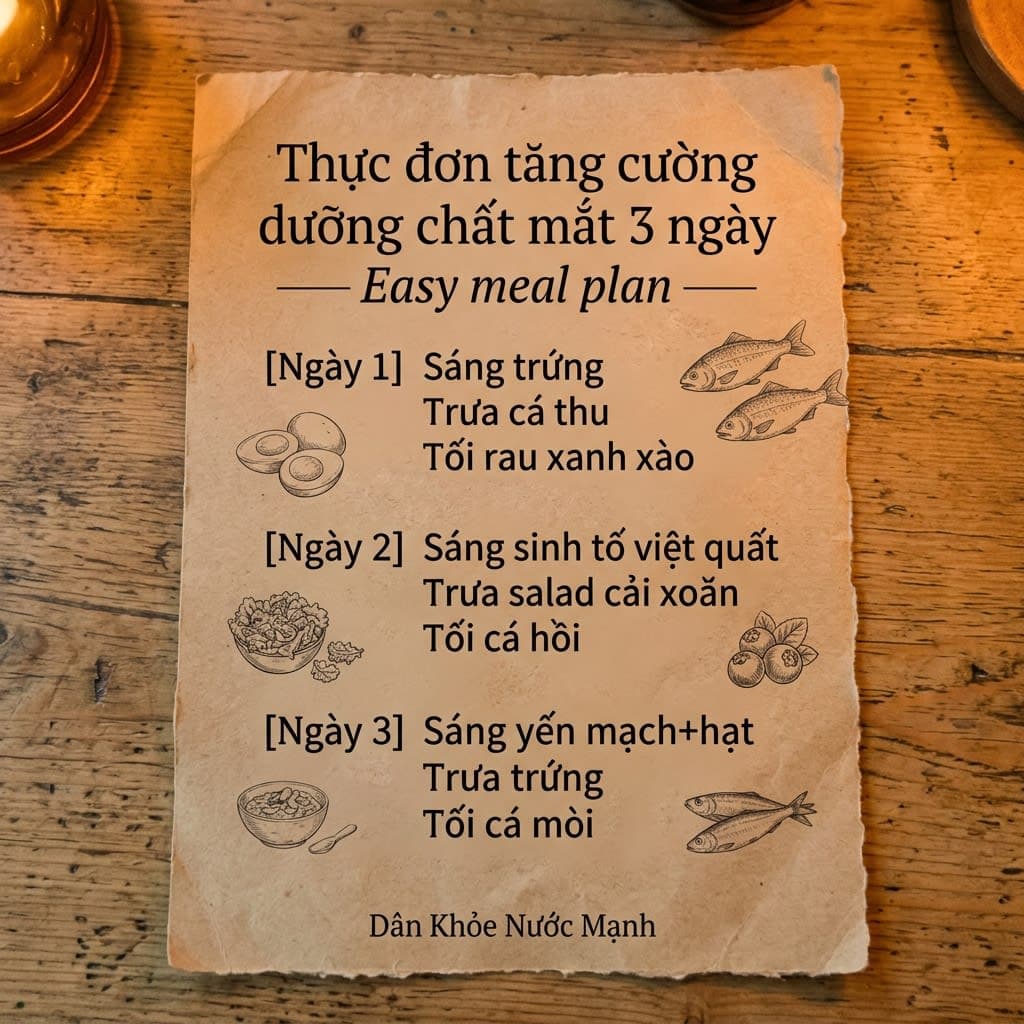 Thực đơn tăng cường
dưỡng chất mắt 3 ngày
Easy meal plan
[Ngày 1] Sáng trứng
Trưa cá thu
Tối rau xanh xào
[Ngày 2] Sáng sinh tố việt quất
Trưa salad cải xoăn
Tối cá hồi
[Ngày 3] Sáng yến mạch+hạt
Trưa trứng
Tối cá mòi
Dân Khỏe Nước Mạnh